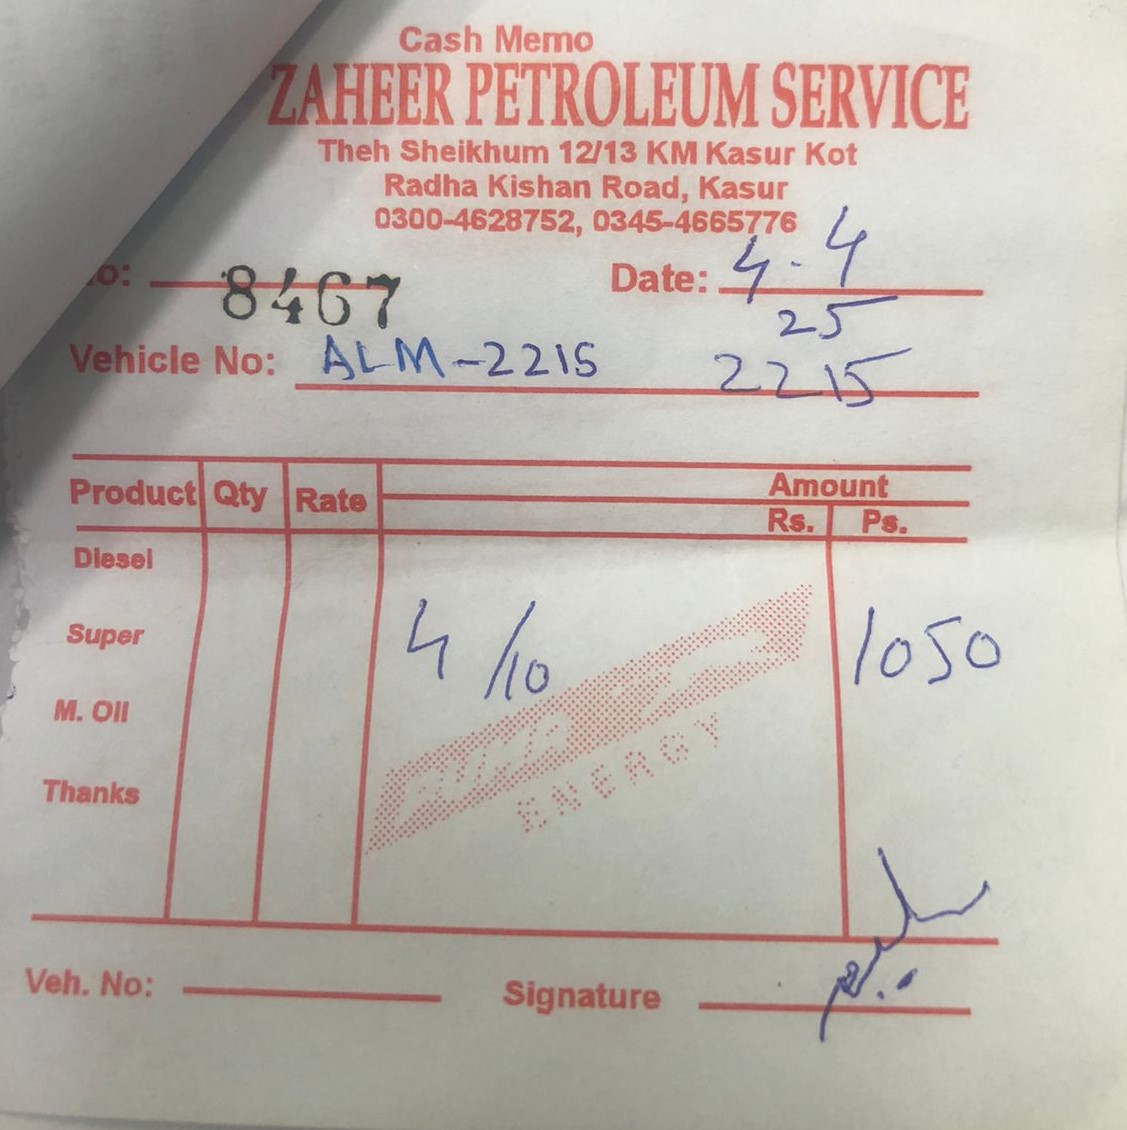 Cash Memo
ZAHEER PETROLEUM SERVICE
Theh Sheikhum 12/13 KM Kasur Kot
Radha Kishan Road, Kasur
0300-4628752, 0345-4665776
o: 8467 Date: 4-4
25
Vehicle No: ALM-2215 2215
Product Qty Rate Amount
Rs. Ps.
Diesel
Super 4/10 1050
M. Oil
ENERGY
Thanks
Veh. No: Signature